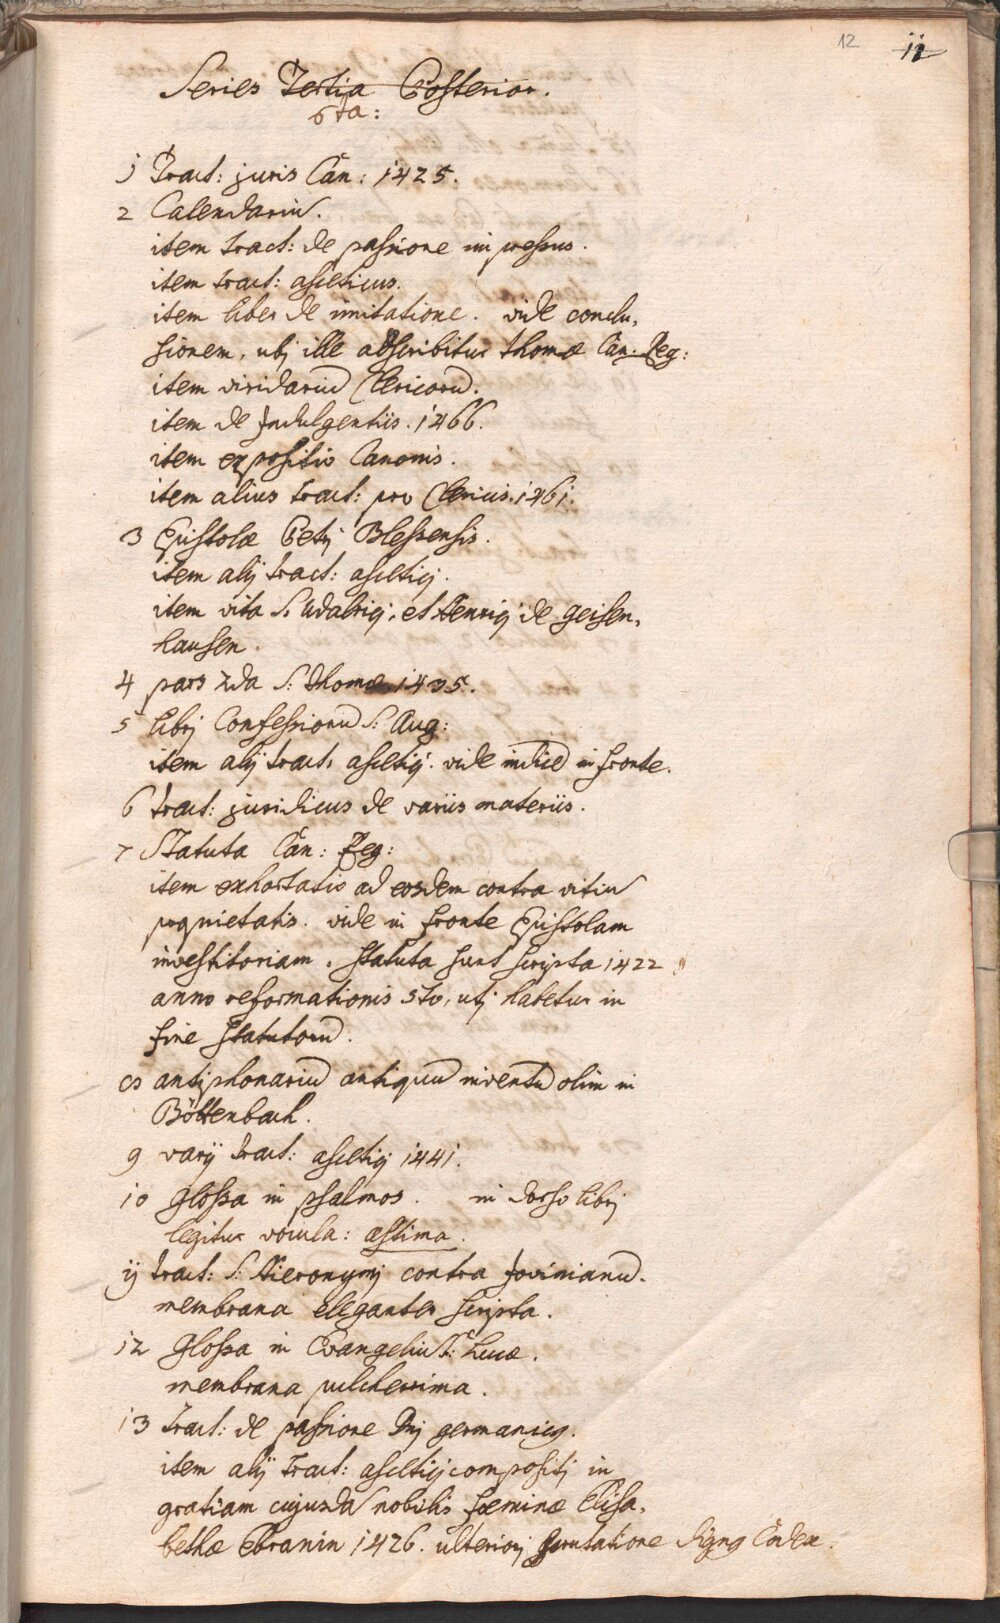 12 11
Series Tertia Posterior.
6ta:
1 Tract: juris Can: 1425.
2 Calendariū.
item tract: de passione impressus.
item tract: asceticus.
item liber de imitatione. vide conclu,
sionem, ubj ille adscribitur Thomæ Can. Reg:
item viridariū Clericorū.
item de Indulgentiis. 1466.
item expositio Canonis.
item alius tract: pro Clericis. 1461.
3 Epistolæ Petrj Blessensis.
item alij tract: ascetici.
item vita S. Udalricj, et Henricj de Geisen,
hausen.
4 pars 2da S: Thomæ 1435.
5 librj Confessionū S: Aug:
item alij tract: ascetici. vide indicē in fronte.
6 tract: juridicus de variis materiis.
7 Statuta Can: Reg:
item exhortatio ad eosdem contra vitiū
proprietatis. vide in fronte Epistolam
investitoriam. statuta sunt scripta 1422
anno reformationis 5to, utj habetur in
fine statutorū.
8 antiphonariū antiquū inventū olim in
Böttenbach.
9 varij tract: ascetici 1441.
10 glossa in psalmos. in dorso librj
legitur vocula: æstima.
11 tract: S: Hieronymj contra Jovinianū.
membrana eleganter scripta.
12 Glossa in Evangeliū S: Lucæ.
membrana pulcherrima.
13 tract: de passione Dnj germanicus.
item alij tract: ascetici compositj in
gratiam cujusdā nobilis fœminæ Elisa,
bethæ Ebranin 1426. ulteriorj scrutatione dignus Codex.